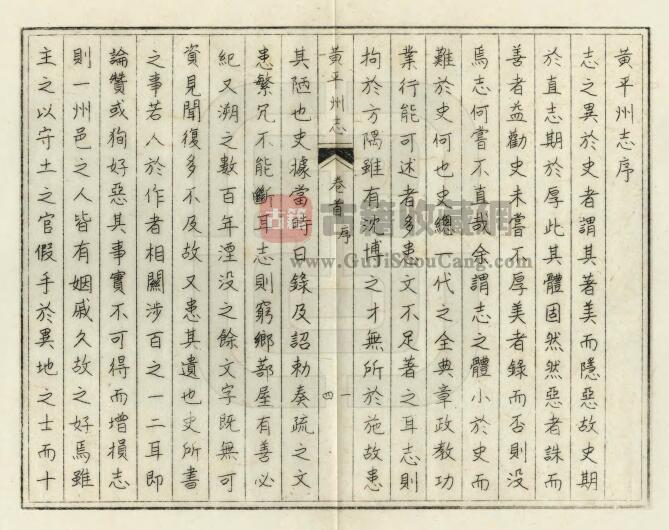 黃平州志序
志之異於史者謂其著美而隱惡故史期
於直志期於厚此其體固然然惡者誅而
善者益勸史未嘗不厚美者錄而否則沒
焉志何嘗不直哉余謂志之體小於史而
難於史何也史總一代之全典章政教功
業行能可述者多患文不足著之耳志則
拘於方隅雖有沈博之才無所於施故患
黃平州志 卷首 序 一 四
其陋也史據當時日錄及詔勅奏疏之文
患繁冗不能斷耳志則窮鄉蔀屋有善必
紀又溯之數百年湮没之餘文字既無可
資見聞復多不及故又患其遺也史所書
之事若人於作者相關涉百之一二耳即
論贊或狥好惡其事實不可得而增損志
則一州邑之人皆有姻戚久故之好焉雖
主之以守土之官假手於異地之士而十
古籍
古籍收藏网
www.GuJiShouCang.com